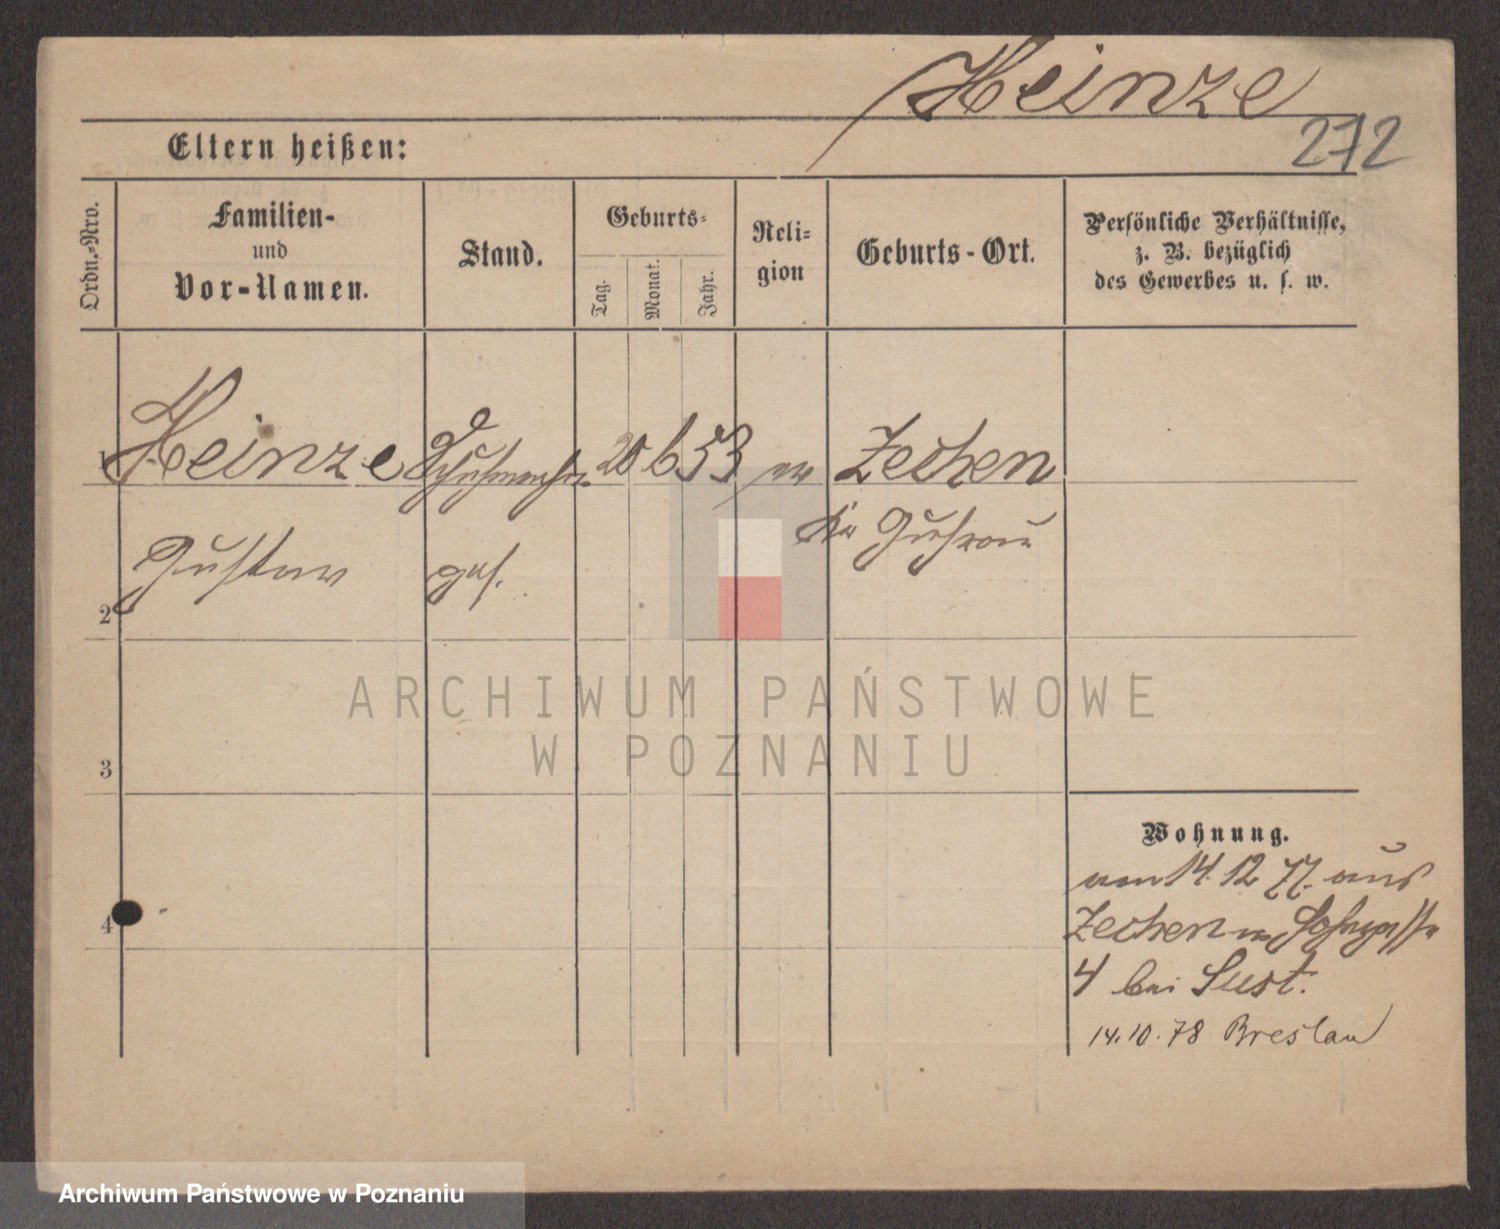 Heinze
272
Eltern heißen:
Ordn.-Nro.
Familien-
und
Vor-Namen.
Stand.
Geburts-
Tag.
Monat.
Jahr.
Reli-
gion
Geburts-Ort.
Persönliche Verhältnisse,
z. B. bezüglich
des Gewerbes u. s. w.
1 Heinze Schuhmacher 20 6 53 Zechen
Kr Guhrau
2 Gustav ges.
ARCHIWUM PAŃSTWOWE
W POZNANIU
3
Wohnung.
4
am 14. 12 77. aus
Zechen
4 bei Sust.
14.10.78 Breslau
Archiwum Państwowe w Poznaniu